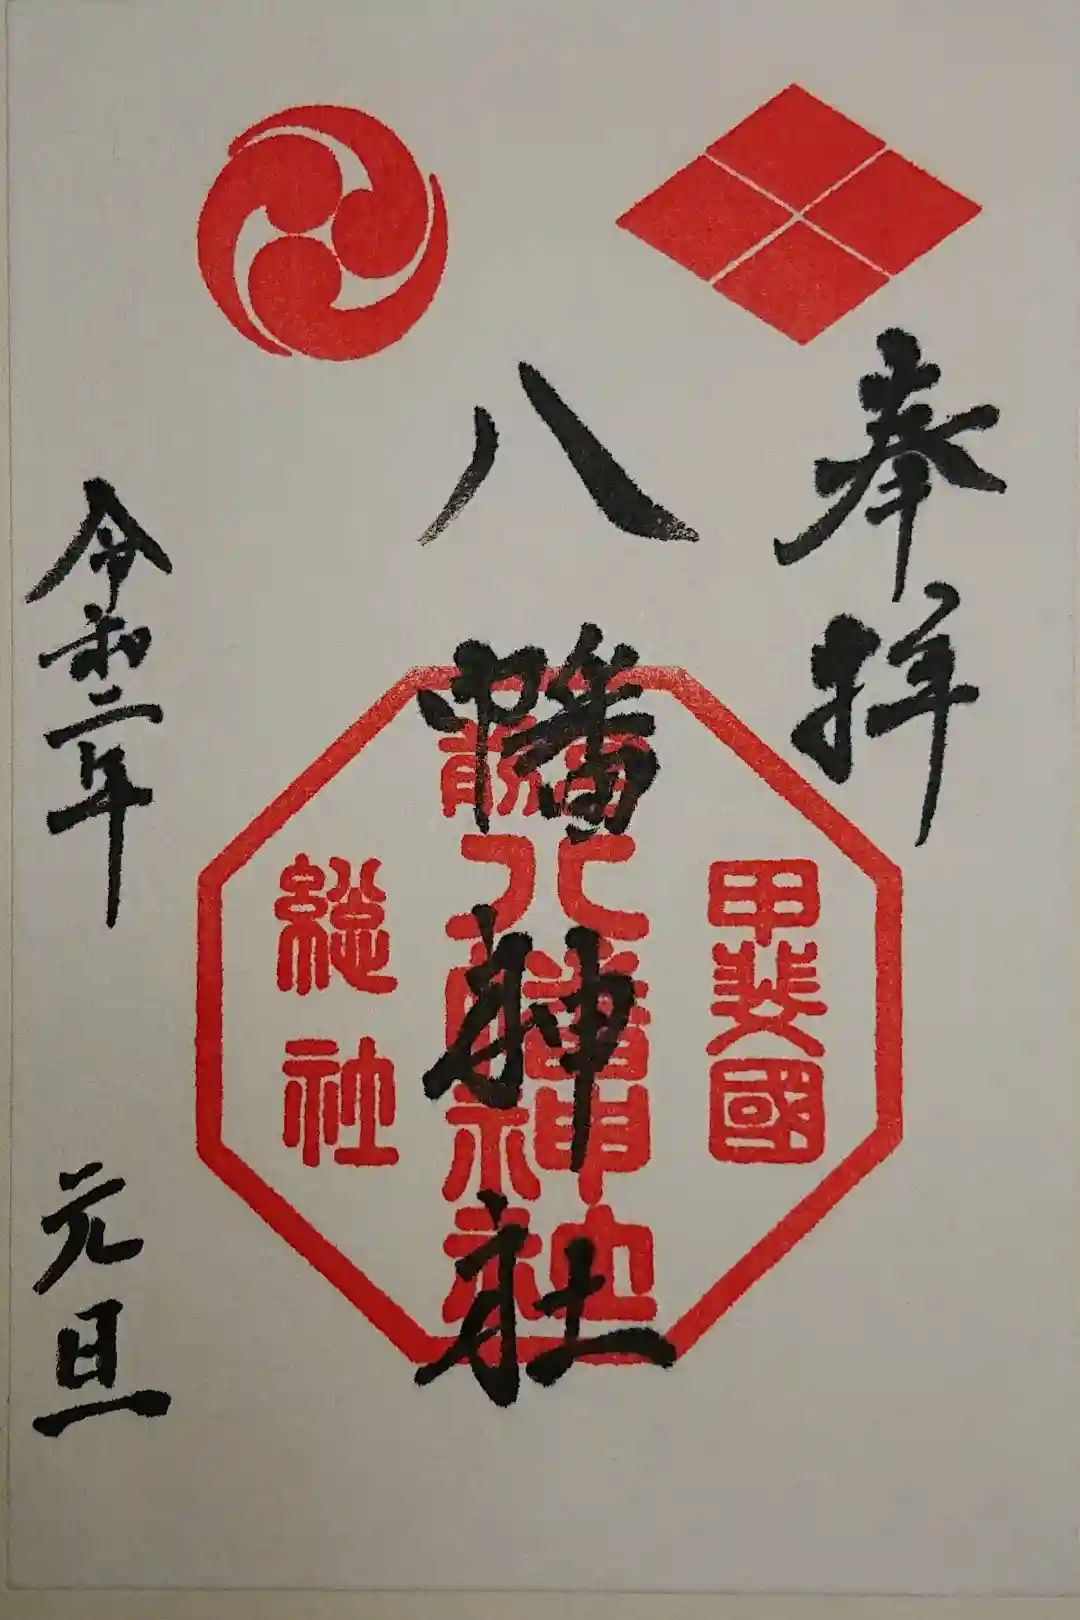 奉拝
甲斐國
八幡神社
府中八幡神社
総社
令和二年 元旦